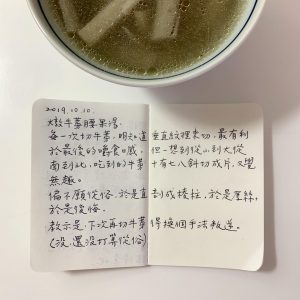 2019.10.10.
牛蒡腰果湯:
每一次切牛蒡,明知道垂直紋理來切,最有利
於最後的嚼食口感。但一想到從小到大從
南到北,吃到的牛蒡十有七八斜切成片,又覺
無趣。
偏不願從俗,於是直 成棱柱,於是 絲,
於是後悔。
教示是,下次再切牛蒡得換個手法
(沒,還沒打算從俗)